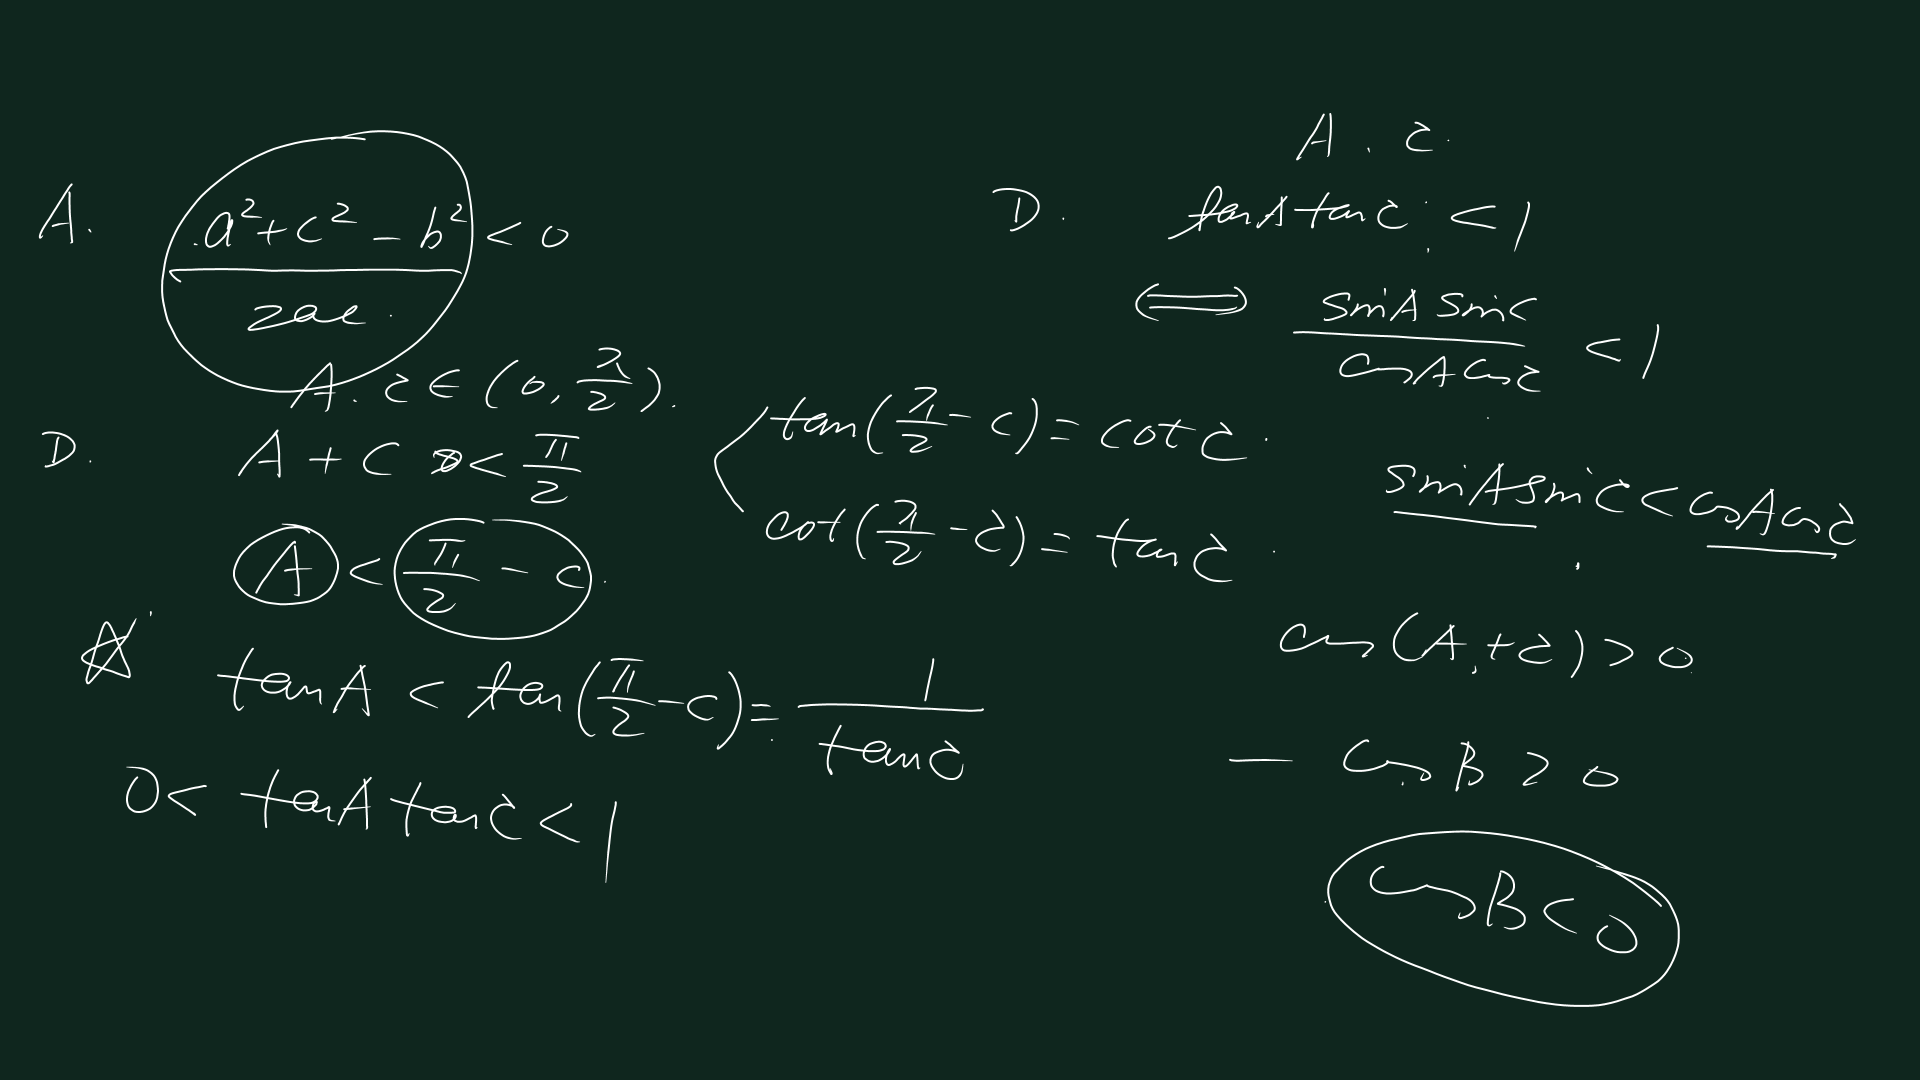 A. (a²+c²-b²)/(2ac) < 0
A. C ∈ (0, π/2).
D. A + C < π/2
A < π/2 - C.
☆ tanA < tan(π/2 - C) = 1/tanC
0 < tanA tanC < 1
tan(π/2 - C) = cotC.
cot(π/2 - C) = tanC.
A. C.
D. tanA tanC < 1
⟺ (sinA sinC)/(cosA cosC) < 1
sinA sinC < cosA cosC
cos(A+C) > 0
- cosB > 0
cosB < 0